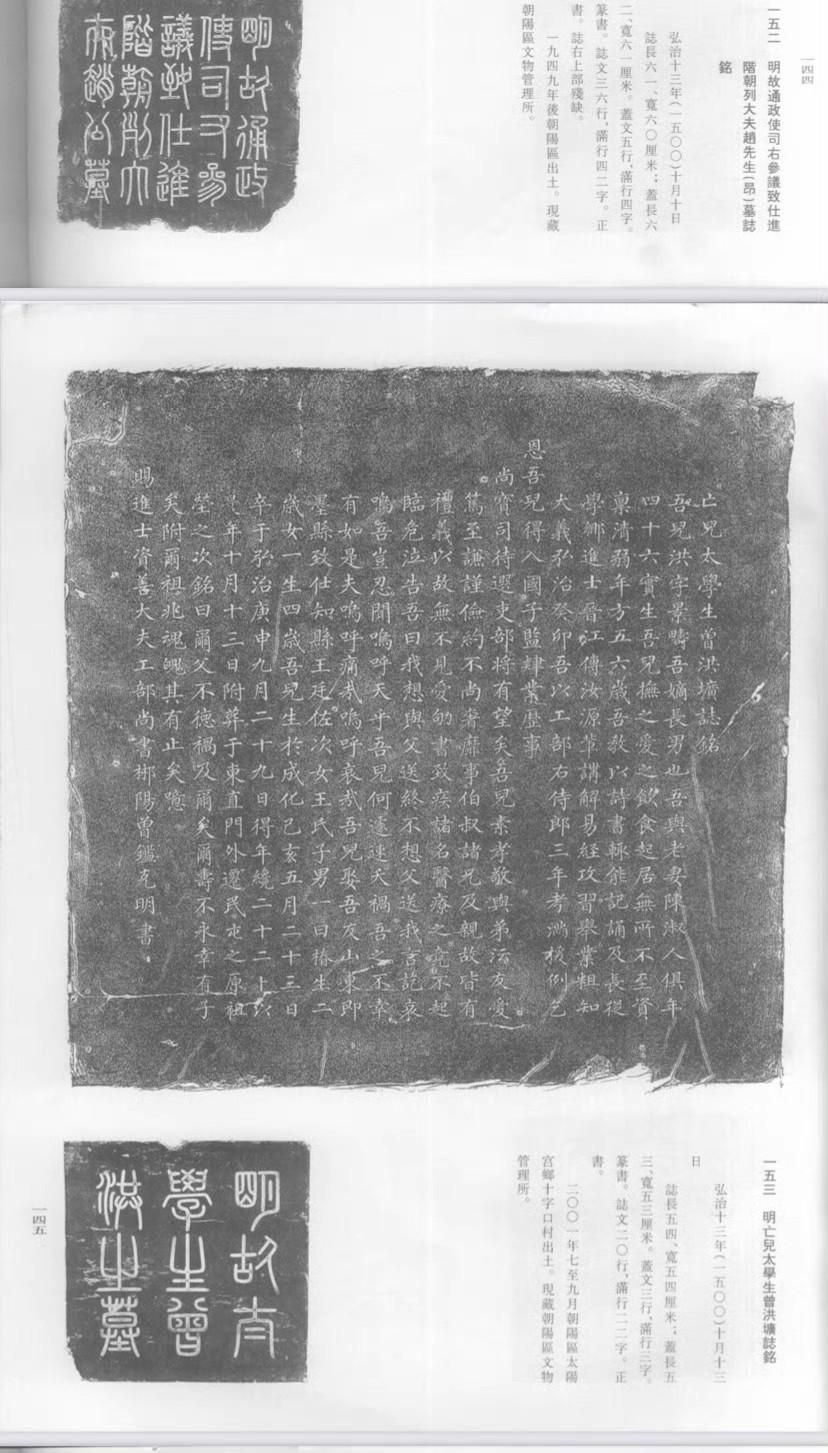 一四四
一五二　明故通政使司右參議致仕進
階朝列大夫趙先生(昂)墓誌
銘
弘治十三年(一五〇〇)十月十日
誌長六一、寬六〇厘米；蓋長六
二、寬六一厘米。蓋文五行，滿行四字。
篆書。誌文三六行，滿行四二字。正
書。誌右上部殘缺。
一九四九年後朝陽區出土。現藏
朝陽區文物管理所。
明故通政
使司右參
議致仕進
階朝列大
夫趙公墓
亡兒太學生曾洪壙誌銘
吾兒洪字景疇吾嫡長男也吾與老妻陳淑人俱年
四十六實生吾兒撫之愛之飲食起居無所不至資
稟清弱年方五六歲吾教以詩書輒能記誦及長從
學鄉進士晉江傅汝源輩講解易經攻習舉業粗知
大義弘治癸卯吾以工部右侍郎三年考滿援例乞
恩吾兒得入國子監肄業歷事
尚寶司待選吏部將有望矣吾兒素孝敬與弟沄友愛
篤至謙謹儉約不尚奢靡事伯叔諸兄及親故皆有
禮義以故無不見愛劬書致疾諸名醫療之竟不起
臨危泣告吾曰我想與父送終不想父送我言訖哀
鳴吾豈忍聞嗚呼天乎吾兒何遽速夭禍吾之不幸
有如是夫嗚呼痛哉嗚呼哀哉吾兒娶吾友山東即
墨縣致仕知縣王廷佐次女王氏子男一曰椿生二
歲女一生四歲吾兒生於成化己亥五月二十三日
卒于弘治庚申九月二十九日得年纔二十二卜以
是年十月十三日附葬于東直門外遷民屯之原祖
塋之次銘曰爾父不德禍及爾矣爾壽不永幸有子
矣附爾祖兆魂魄其有止矣噫
賜進士資善大夫工部尚書郴陽曾鑑克明書
一五三　明亡兒太學生曾洪壙誌銘
弘治十三年(一五〇〇)十月十三
日
誌長五四、寬五四厘米；蓋長五
三、寬五三厘米。蓋文三行，滿行三字。
篆書。誌文二〇行，滿行二二字。正
書。
二〇〇一年七至九月朝陽區太陽
宮鄉十字口村出土。現藏朝陽區文物
管理所。
明故太
學生曾
洪之墓
一四五